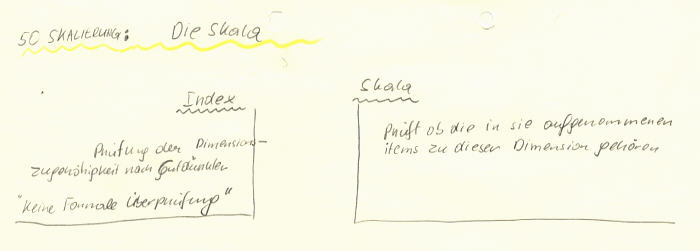 5C SKALIERUNG: Die Skala
Index
Prüfung der Dimensions-
zugehörigkeit nach Gutdünken
"Keine Formale Überprüfung"
Skala
Prüft ob die in sie aufgenommenen
items zu dieser Dimension gehören